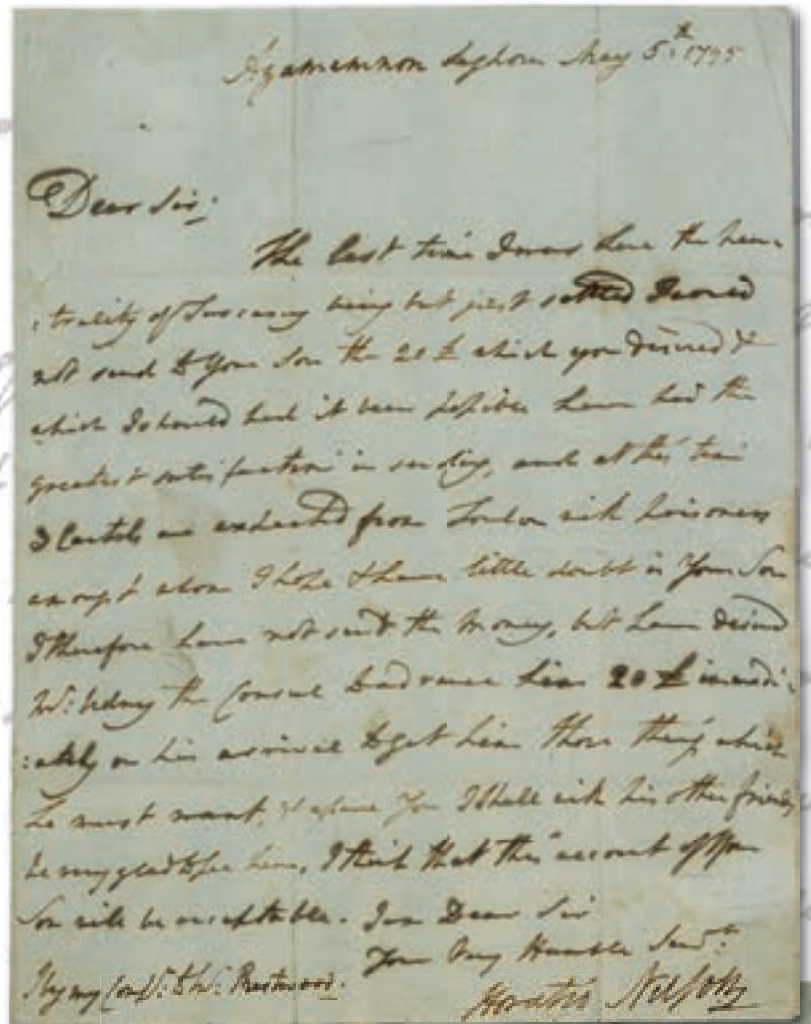 Agamemnon Leghorn May 5.th 1795
Dear Sir;
The last time I was here the neu-
:trality of Tuscany being but just settled I could
not send to Your Son the 20£ which you desired &
which I should had it been possible have had the
greatest satisfaction in sending, and at this time
3 Cartels are expected from Toulon with Prisoners
amongst whom I hope & have little doubt is Your Son
I therefore have not sent the money, but have desired
Mr: Udney the Consul to advance him 20£ immedi-
:ately on his arrival to get him those things which
he must want, I assure You I shall with his other friends
be very glad to see him, I think that this account of Your
Son will be acceptable. I am Dear Sir
Your Very Humble Servt:
I beg my Compts: to Mr: Prestwood.
Horatio Nelson